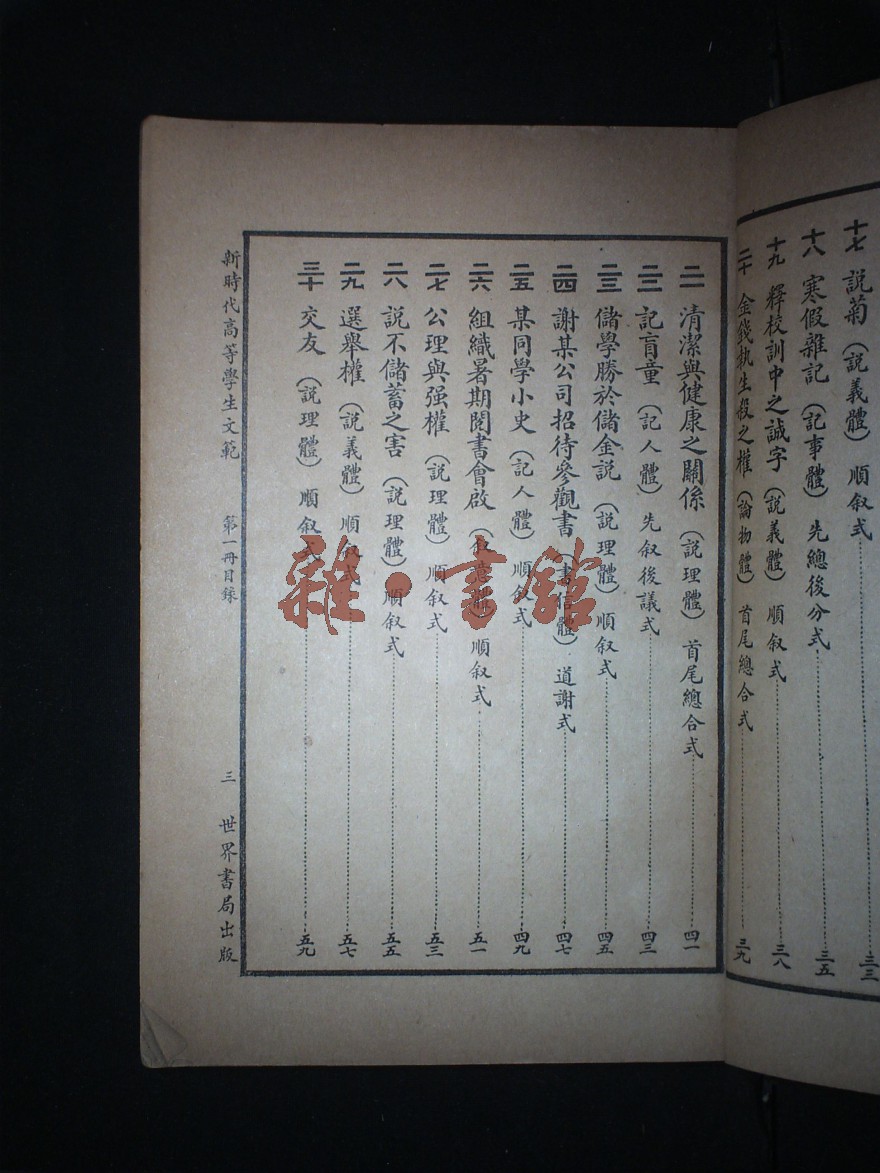 十七 説菊（説義體）順叙式 三三
十八 寒假雜記（記事體）先總後分式 三五
十九 釋校訓中之誠字（説義體）順叙式 三八
二十 金錢執生殺之權（論物體）首尾總合式 三九
二一 清潔與健康之關係（説理體）首尾總合式 四一
二二 記盲童（記人體）先叙後議式 四三
二三 儲學勝於儲金説（説理體）順叙式 四五
二四 謝某公司招待參觀書（書信體）道謝式 四七
二五 某同學小史（記人體）順叙式 四九
二六 組織暑期閱書會啟（體）順叙式 五一
二七 公理與强權（説理體）順叙式 五三
二八 説不儲蓄之害（説理體）順叙式 五五
二九 選舉權（説義體）順叙式 五七
三十 交友（説理體）順叙式 五九
新時代高等學生文範 第一冊目錄 三 世界書局出版
雜·書館